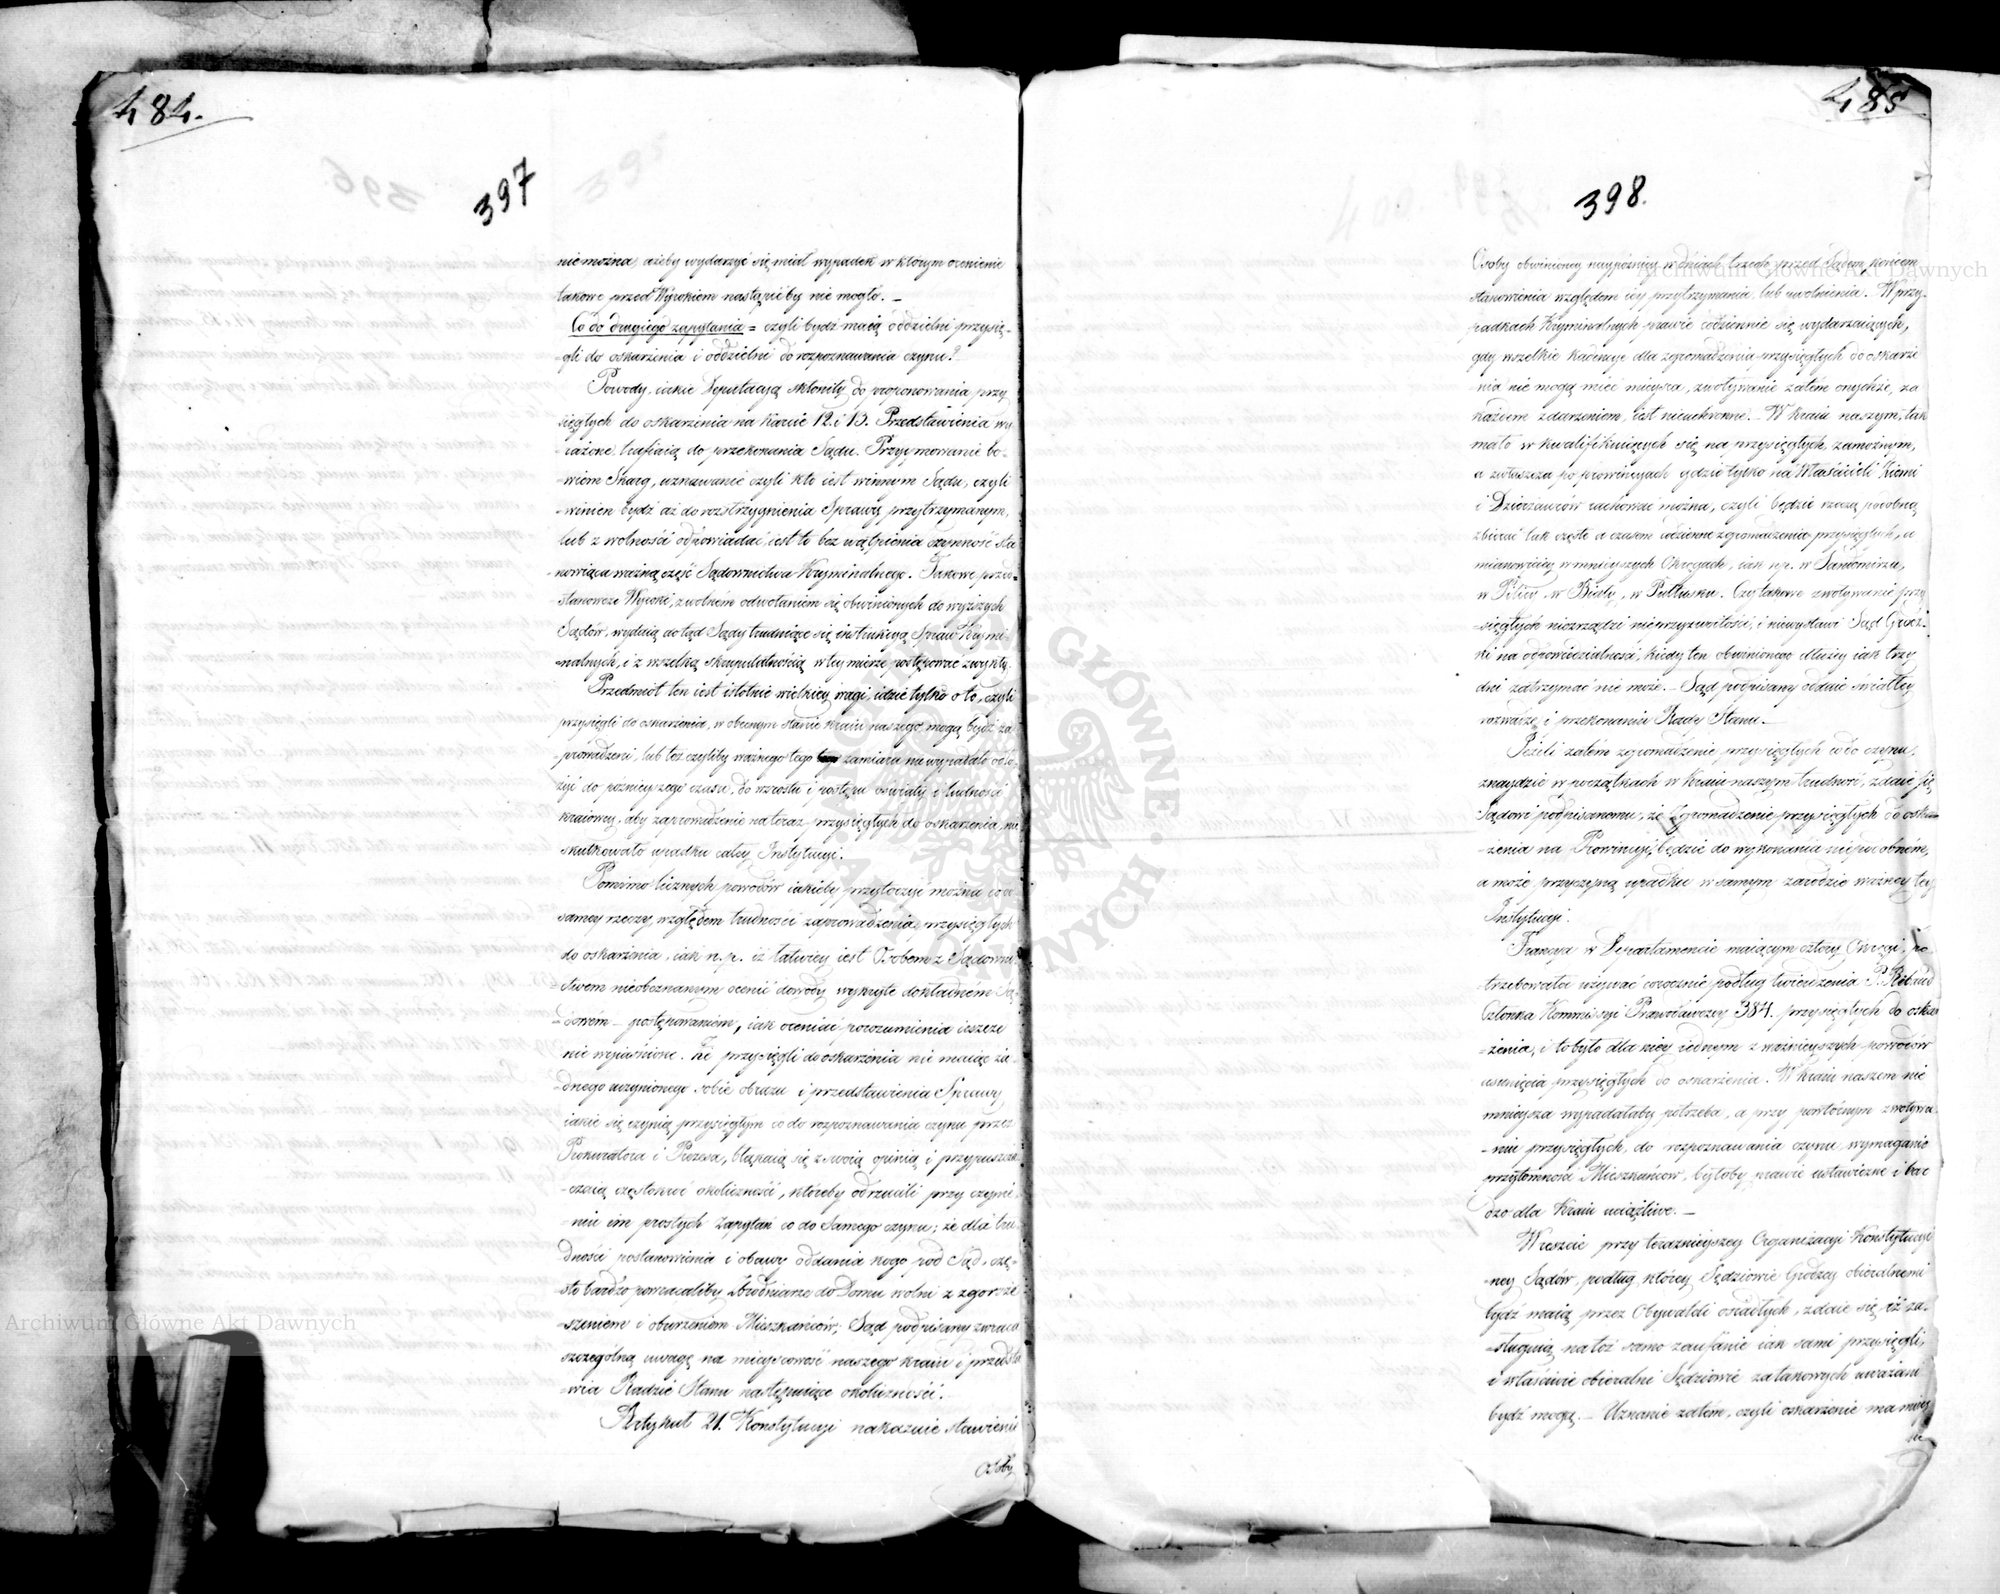 484.
397
nie można, ażeby wydarzyć się miał wypadek w którym ocenienie
takowe przed Wyrokiem nastąpić by nie mogło. —
Co do drugiego zapytania = czyli bydź maią oddzielni przysię-
-gli do oskarżenia i oddzielni do rozpoznawania czynu?
Powody, iakie Deputacyą skłoniły do proponowania przy
sięgłych do oskarżenia na karcie 12. i 13. Przedstawienia wy
-rażone, trafiaią do przekonania Sądu. Przyymowanie bo-
-wiem Skarg, uznawanie czyli kto iest winnym Sądu, czyli
-winien bydź aż do rozstrzygnienia Sprawy przytrzymanym,
lub z wolności odpowiadać, iest to bez wątpienia czynność sta
-nowiąca ważną część Sądownictwa Kryminalnego. Takowe przed-
-stanowcze Wyroki, z wolném odwołaniem się obwinionych do wyższych
Sądów, wydaią dotąd Sądy trudniące się instrukcyą Spraw Krymi-
-nalnych, i z wszelką skrupulatnością w tey mierze postępować zwykły.
Przedmiot ten iest istotnie wielkiey wagi, idzie tylko o to, czyli
przysięgli do oskarżenia, w obecnym stanie kraiu naszego, mogą bydź za
-prowadzeni, lub też czyliby ważnego tego zamiaru nie wypadało odło
żyć do poźnieyszego czasu, do wzrostu i postępu oświaty i ludności
kraiowey, aby zaprowadzenie na teraz przysięgłych do oskarżenia, nie
skutkowało upadku całey Instytucyi.
Pomimo licznych powodów iakieby przytoczyć można co do
samey rzeczy, względem trudności zaprowadzenia przysięgłych
do oskarżenia, iak n. p. iż łatwiey iest Osobom z Sądowni
-ctwem nieobeznanym ocenić dowody wykryte dokładném Są
-dowém postępowaniem, iak oceniać porozumienia ieszcze
nie wyiaśnione. Że przysięgli do oskarżenia nie maiąc ża-
-dnego uczynionego sobie obrazu i przedstawienia Sprawy
iakie się czynią przysięgłym co do rozpoznawania czynu przez
Prokuratora i Prezesa, błąkaią się z swoią opinią i przypuszcza
-czaią częstokroć okoliczności, któreby odrzucili przy czynie
-niu im prostych Zapytań co do Samego czynu; że dla tru
dności postanowienia i obawy oddania kogo pod Sąd, czę-
-sto bardzo powracaliby Zbrodniarze do Domu wolni z zgorsze
-szeniem i oburzeniem Mieszkańców; Sąd podpisany zwraca
szczególną uwagę na mieyscowość naszego kraiu i przedsta
-wia Radzie Stanu następuiące okoliczności.
Artykuł 21. Konstytucyi nakazuie stawienie
Osoby
485
398.
Osoby obwinioney naypóźniey w dniach trzech przed Sądem końcem
stanowienia względem iey przytrzymania, lub uwolnienia. W przy-
padkach Kryminalnych prawie codziennie się wydarzaiących,
gdy wszelkie kadencye dla zgromadzenia przysięgłych do oskarże
-nia nie mogą mieć mieysca, zwoływanie zatém onychże, za
każdem zdarzeniem, iest nieuchronne. — W kraiu naszym, tak
mało w kwalifikuiących się na przysięgłych, zamożnym,
a zwłaszcza po prowincyach gdzie tylko na Właścicieli Ziemi
i Dzierżawców rachować można, czyli będzie rzeczą podobną
zbierać tak częste a czasem codzienne zgromadzenia przysięgłych, a
mianowiciey w mnieyszych Okręgach, iak n. p. w Sandomirzu,
w Pilicy, w Biały, w Pułtusku. Czy takowe zwoływanie przy
-sięgłych niezrządzi nieprzyzwoitości, i niewystawi Sąd Grodz
ki na odpowiedzialność, kiedy ten obwinionego dłużey iak trzy
dni zatrzymać nie może. — Sąd podpisany oddaie światłey
rozwadze i przekonaniu Rady Stanu. —
Jeżeli zatém zgromadzenie przysięgłych co do czynu,
znaydzie w początkach w kraiu naszym trudność, zdaie się
Sądowi podpisanemu, że Zgromadzenie przysięgłych do oskar
-żenia na Prowincyi, będzie do wykonania niepodobném,
a może przyczyną upadku w samym zarodzie ważney tey
Instytucyi.
Francya w Departamencie maiącym cztery Okręgi, po
-trzebowała używać corocznie podług twierdzenia P.
Członka Kommissyi Prawodawczey 384. przysięgłych do oskar
-żenia, i to było dla niey iednym z ważnieyszych powodów
usunięcia przysięgłych do oskarżenia. W kraiu naszem nie
mnieysza wypadałaby potrzeba, a przy powtórnym zwoływa
-niu przysięgłych, do rozpoznawania czynu, wymaganie
przytomności Mieszkańców, byłoby prawie ustawiczne i bar
dzo dla Kraiu uciążliwe. —
Wreszcie przy teraznieyszey Organizacyi Konstytucyi
-ney Sądów, podług którey Sędziowie Grodzcy obieralnemi
bydź maią przez Obywateli osiadłych, zdaie się iż za-
-sługuią na toż samo zaufanie iak sami przysięgli,
i właściwie obieralni Sędziowie za takowych uważani
bydź mogą. — Uznanie zatém, czyli oskarżenie ma miey
Archiwum Główne Akt Dawnych
Archiwum Główne Akt Dawnych